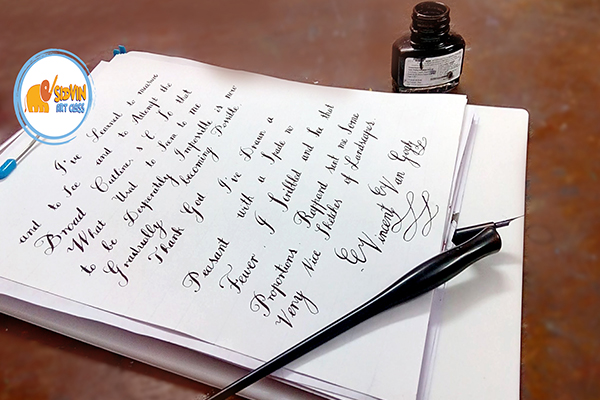 ART CLASS
I've Learned to Measure
and to See and to Attempt the
Broad Outlines &C So that
What Used to Seem to Me
to be Desperately Impossible is Now
Gradually becoming Possible.
Thank God I've Drawn a
Peasant with a Spade no
Fewer. I Scribbled and he that
Proportions Rappard sent me Some
Very Nice Sketches of Landscapes.
Vincent Van Gogh